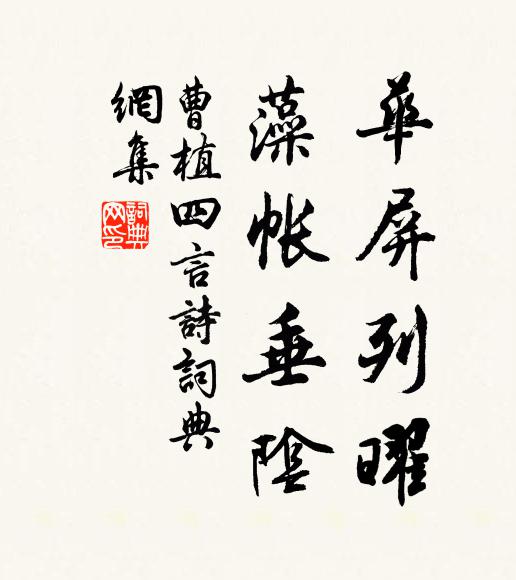 華屏列曜
藻帐垂陰
曹植四言詩詞典
網集
詞典
网印